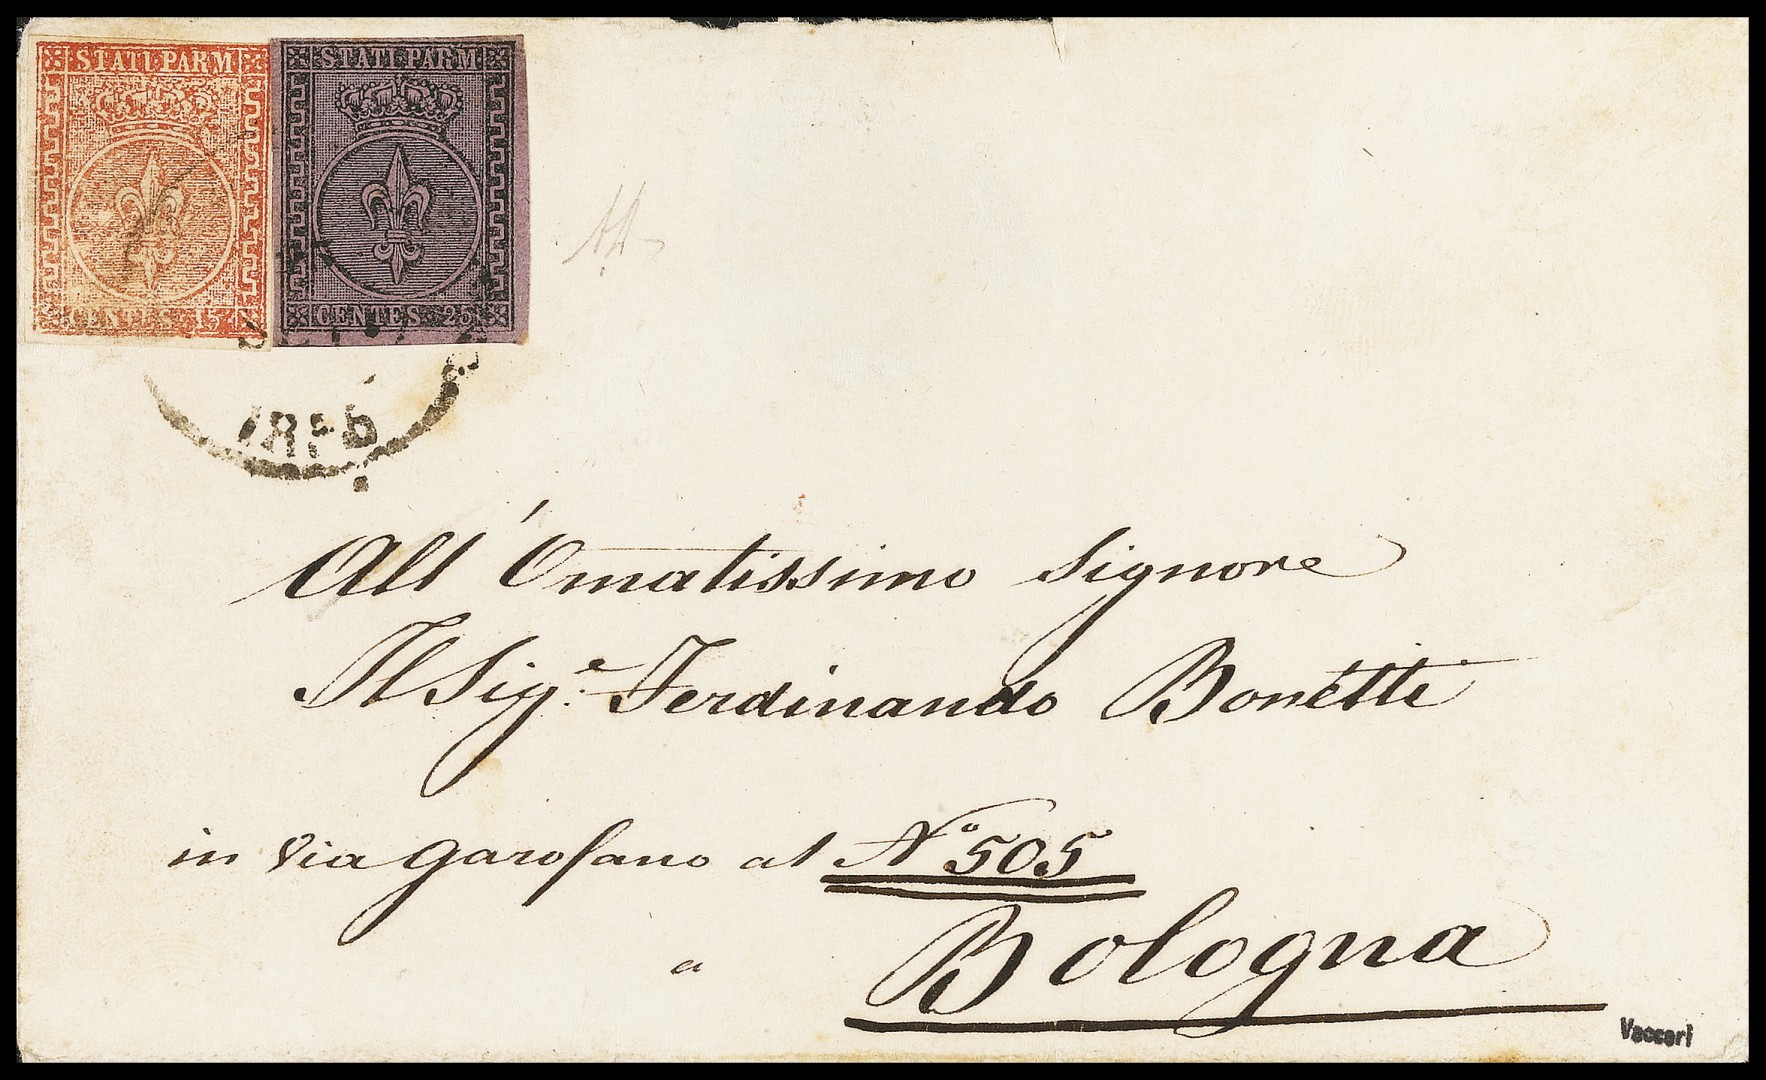 STATI PARM
CENTES. 15
STATI PARM
CENTES. 25
All' Ornatissimo Signore
Il Sig.e Ferdinando Bonetti
in Via Garofano al No 505
a
Bologna
Vaccari